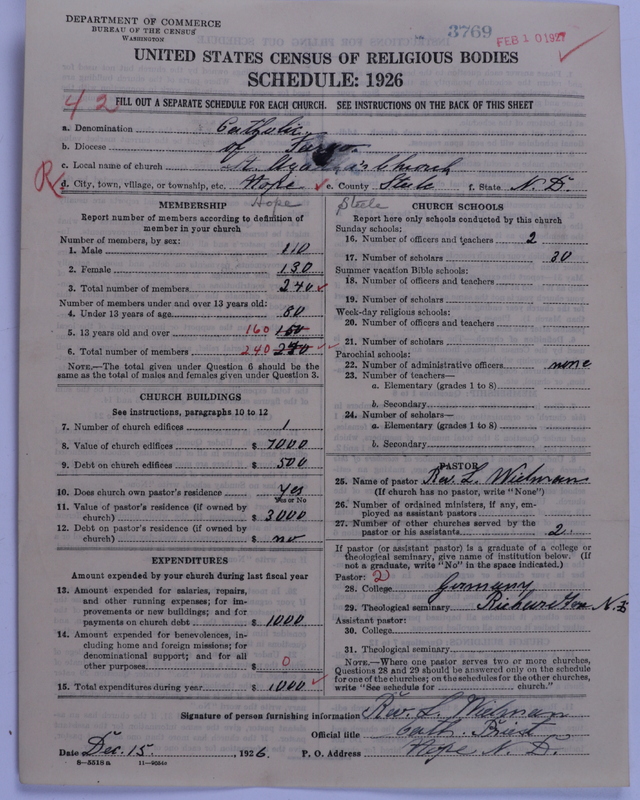 DEPARTMENT OF COMMERCE
BUREAU OF THE CENSUS
WASHINGTON
3769
FEB 10 1927
UNITED STATES CENSUS OF RELIGIOUS BODIES
SCHEDULE: 1926
42
FILL OUT A SEPARATE SCHEDULE FOR EACH CHURCH. SEE INSTRUCTIONS ON THE BACK OF THIS SHEET
a. Denomination Catholic
b. Diocese of Fargo
c. Local name of church St. Church
R
d. City, town, village, or township, etc. Hope e. County Steele f. State N. D.
Hope Steele
MEMBERSHIP
Report number of members according to definition of
member in your church
Number of members, by sex:
1. Male 110
2. Female 130
3. Total number of members 240
Number of members under and over 13 years old:
4. Under 13 years of age 80
5. 13 years old and over 160 150
6. Total number of members 240 230
NOTE.—The total given under Question 6 should be
same as the total of males and females given under Question 3.
CHURCH BUILDINGS
See instructions, paragraphs 10 to 12
7. Number of church edifices 1
8. Value of church edifices $ 7000
9. Debt on church edifices $ 500
10. Does church own pastor's residence yes
Yes or No
11. Value of pastor's residence (if owned by
church) $ 3000
12. Debt on pastor's residence (if owned by
church) $ no
EXPENDITURES
Amount expended by your church during last fiscal year
13. Amount expended for salaries, repairs,
and other running expenses; for im-
provements or new buildings; and for
payments on church debt $ 1000
14. Amount expended for benevolences, in-
cluding home and foreign missions; for
denominational support; and for all
other purposes $ 0
15. Total expenditures during year $ 1000
CHURCH SCHOOLS
Report here only schools conducted by this church
Sunday schools:
16. Number of officers and teachers 2
17. Number of scholars 30
Summer vacation Bible schools:
18. Number of officers and teachers
19. Number of scholars
Week-day religious schools:
20. Number of officers and teachers
21. Number of scholars
Parochial schools:
22. Number of administrative officers none
23. Number of teachers—
a. Elementary (grades 1 to 8)
b. Secondary
24. Number of scholars—
a. Elementary (grades 1 to 8)
b. Secondary
PASTOR
25. Name of pastor Rev. L. Wielman
(If church has no pastor, write "None")
26. Number of ordained ministers, if any, em-
ployed as assistant pastors
27. Number of other churches served by the
pastor or his assistants 2
If pastor (or assistant pastor) is a graduate of a college or
theological seminary, give name of institution below. (If
not a graduate, write "No" in the space indicated.)
Pastor: 2
28. College Germany
29. Theological seminary Richardton N. D.
Assistant pastor:
30. College
31. Theological seminary
NOTE.—Where one pastor serves two or more churches,
Questions 28 and 29 should be answered only on the schedule
for one of the churches; on the schedules for the other churches,
write "See schedule for church."
Signature of person furnishing information Rev. L. Wielman
Official title Cath. Priest
Date Dec. 15, 1926. P. O. Address Hope N. D.
8—5518 a